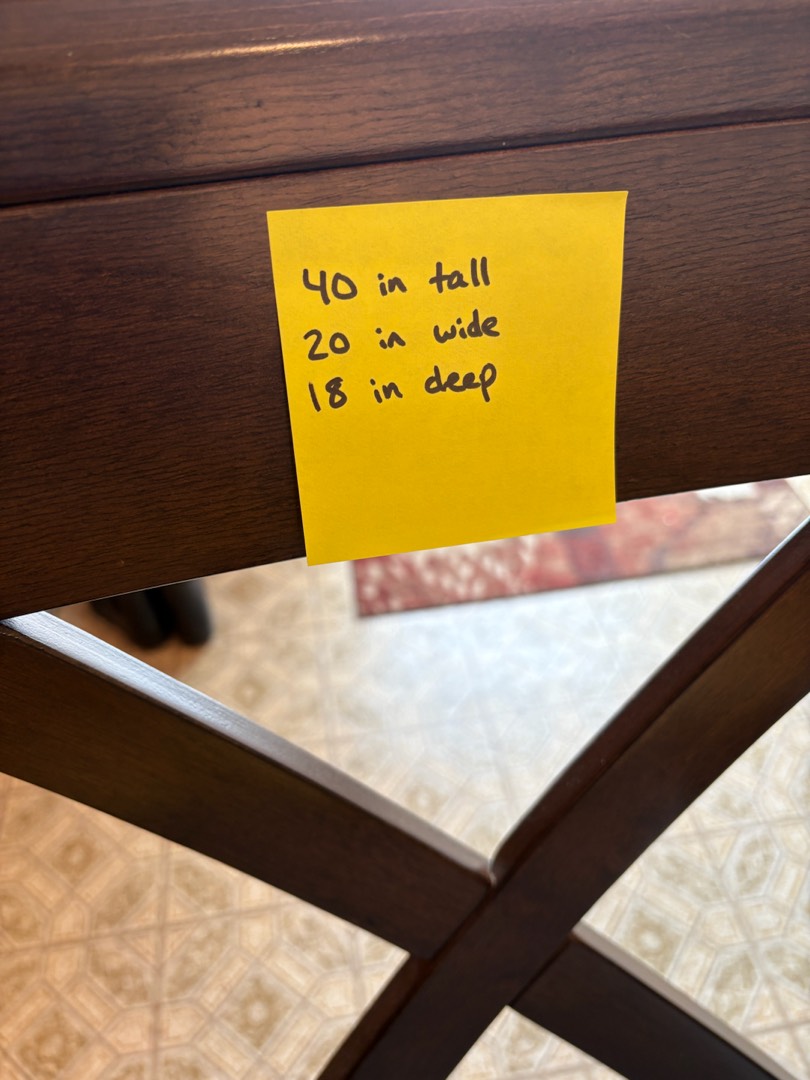 40 in tall
20 in wide
18 in deep